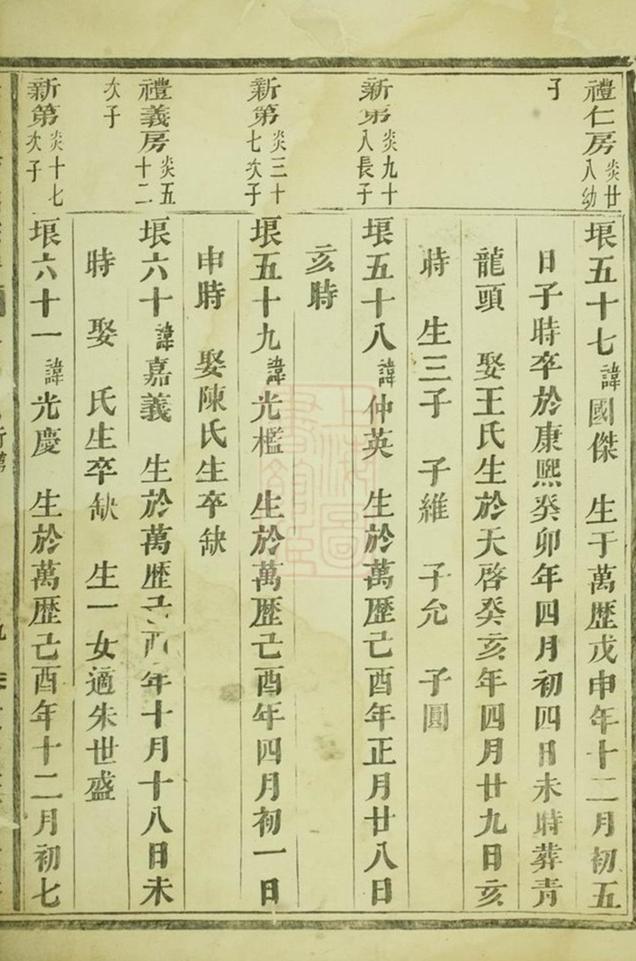 禮仁房炎廿八幼
子
堒五十七諱國傑 生于萬歷戊申年十二月初五
日子時卒於康熙癸卯年四月初四日未時葬青
龍頭 娶王氏生於天啓癸亥年四月廿九日亥
時 生三子 子維 子允 子圓
新第炎九十八長子
堒五十八諱仲英 生於萬歷己酉年正月廿八日
亥時
新第炎三十七次子
堒五十九諱光檻 生於萬歷己酉年四月初一日
申時 娶陳氏生卒缺
禮義房炎五十二
次子
堒六十諱嘉義 生於萬歷己酉年十月十八日未
時 娶 氏生卒缺 生一女適朱世盛
新第炎十七次子
堒六十一諱光慶 生於萬歷己酉年十二月初七